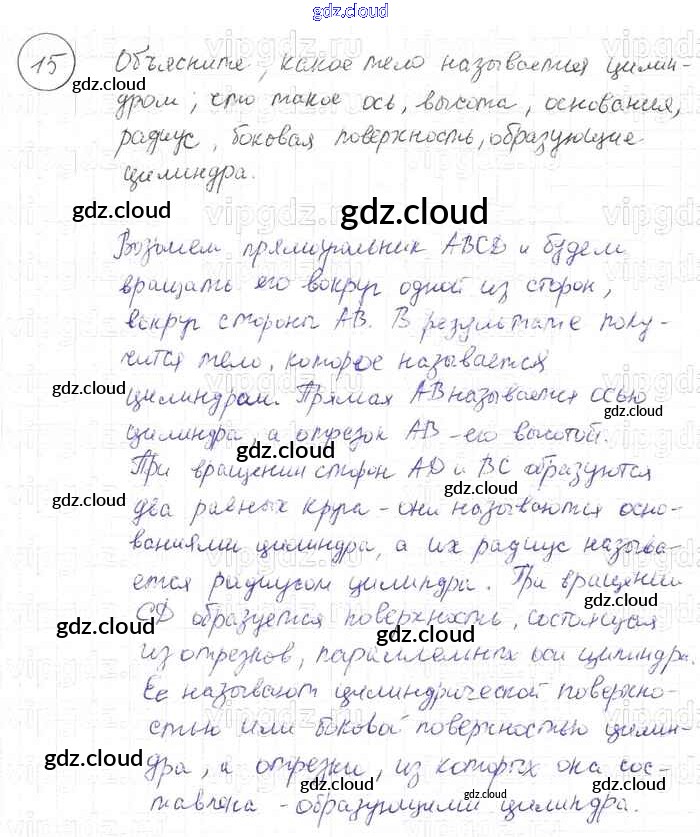 gdz.cloud
15 Объясните, какое тело называется цилин-
дром; что такое ось, высота, основания,
радиус, боковая поверхность, образующие
цилиндра.
Возьмем прямоугольник ABCD и будем
вращать его вокруг одной из сторон,
вокруг стороны AB. В результате полу-
чится тело, которое называется
цилиндром. Прямая AB называется осью
цилиндра, а отрезок AB - его высотой.
При вращении сторон AD и BC образуются
два равных круга - они называются осно-
ваниями цилиндра, а их радиус называ-
ется радиусом цилиндра. При вращении
CD образуется поверхность, состоящая
из отрезков, параллельных оси цилиндра.
Ее называют цилиндрической поверхно-
стью или боковой поверхностью цилин-
дра, а отрезки, из которых она сос-
тавлена - образующими цилиндра.